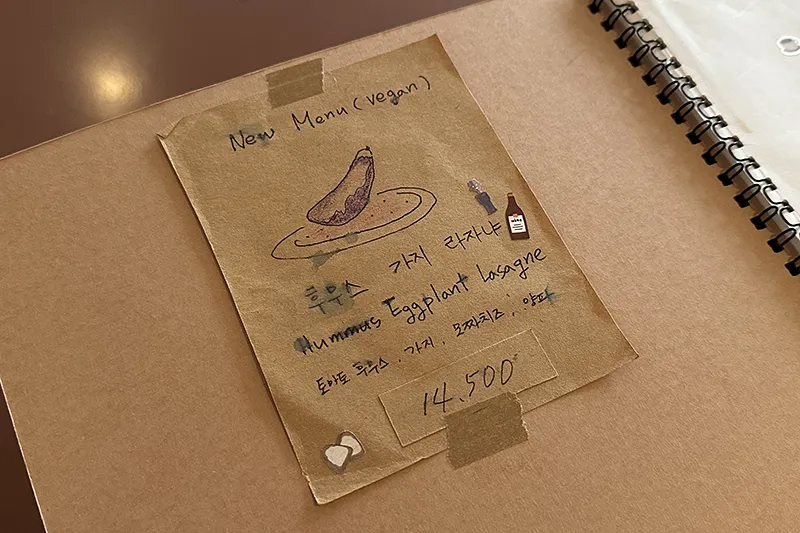 New Menu (vegan)
후무스 가지 라자냐
Hummus Eggplant lasagne
토마토 후무스, 가지, 모짜치즈, 양파
14.500